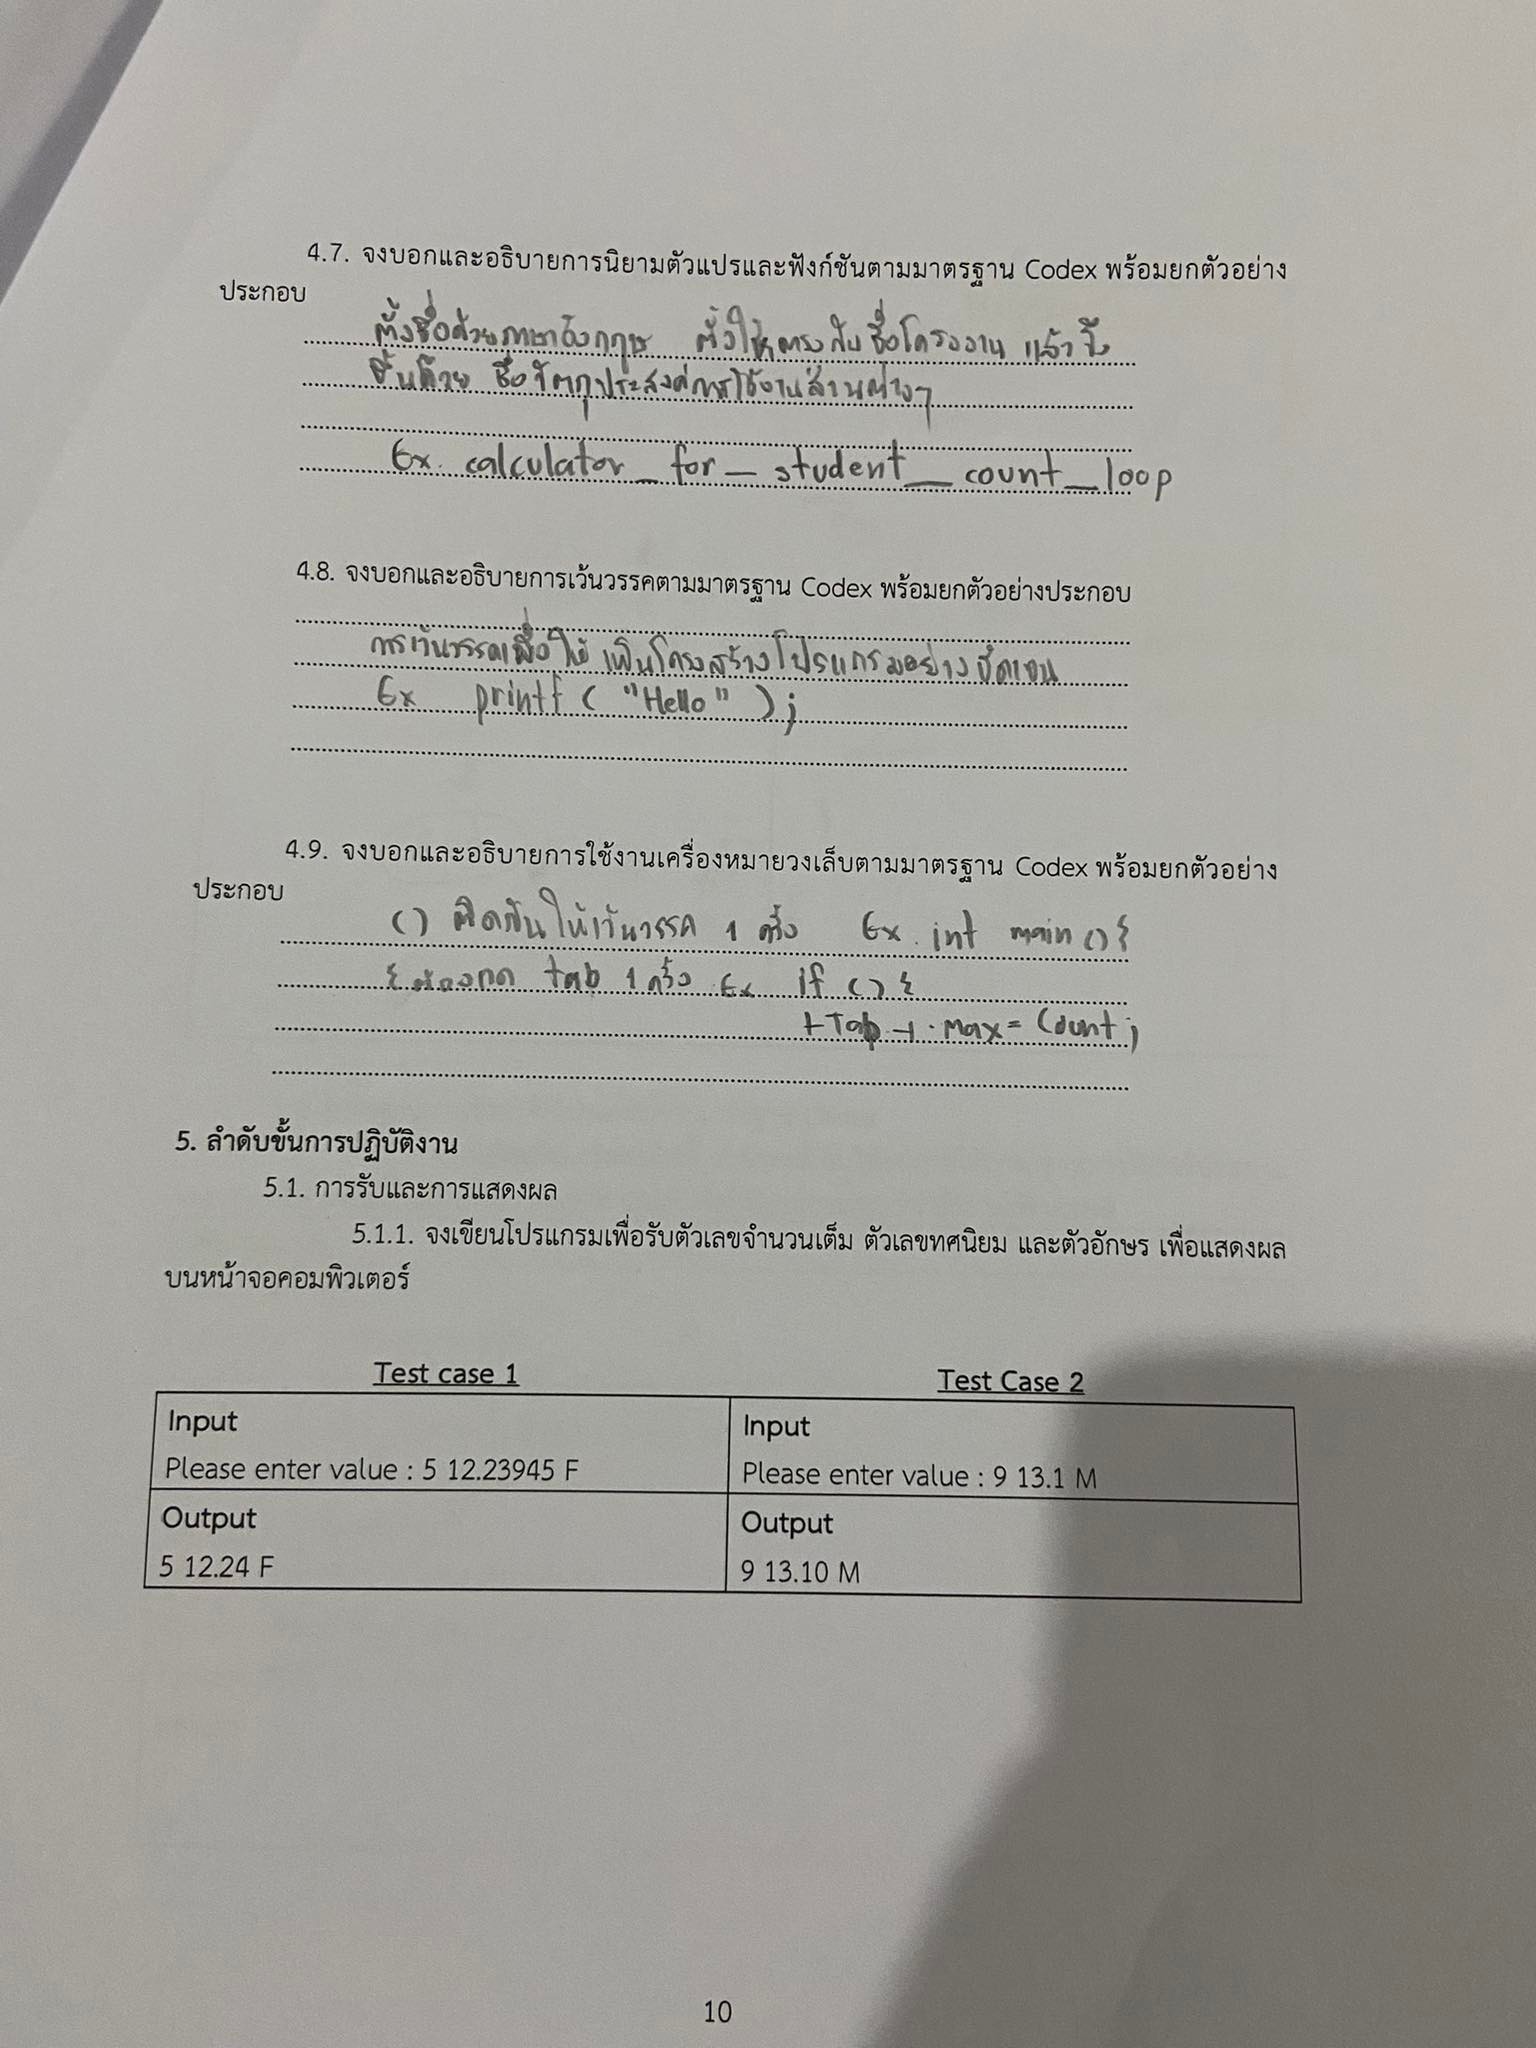 4.7. จงบอกและอธิบายการนิยามตัวแปรและฟังก์ชันตามมาตรฐาน Codex พร้อมยกตัวอย่าง
ประกอบ
ตั้งชื่อด้วยภาษาอังกฤษ ตั้งให้ตรงกับชื่อโครงงาน แล้วจึง
ขึ้นด้วย ชื่อวัตถุประสงค์การใช้งานส่วนต่างๆ
Ex. calculator_for_student_count_loop
4.8. จงบอกและอธิบายการเว้นวรรคตามมาตรฐาน Codex พร้อมยกตัวอย่างประกอบ
การเว้นวรรคเพื่อให้เห็นโครงสร้างโปรแกรมอย่างชัดเจน
Ex printf ( "Hello" ) ;
4.9. จงบอกและอธิบายการใช้งานเครื่องหมายวงเล็บตามมาตรฐาน Codex พร้อมยกตัวอย่าง
ประกอบ
() ติดกันให้เว้นวรรค 1 ครั้ง Ex. int main () {
{ ต้องกด tab 1 ครั้ง Ex if () {
Tab max = Count ;
5. ลำดับขั้นการปฏิบัติงาน
5.1. การรับและการแสดงผล
5.1.1. จงเขียนโปรแกรมเพื่อรับตัวเลขจำนวนเต็ม ตัวเลขทศนิยม และตัวอักษร เพื่อแสดงผล
บนหน้าจอคอมพิวเตอร์
Test case 1
Test Case 2
Input
Please enter value : 5 12.23945 F
Input
Please enter value : 9 13.1 M
Output
5 12.24 F
Output
9 13.10 M
10